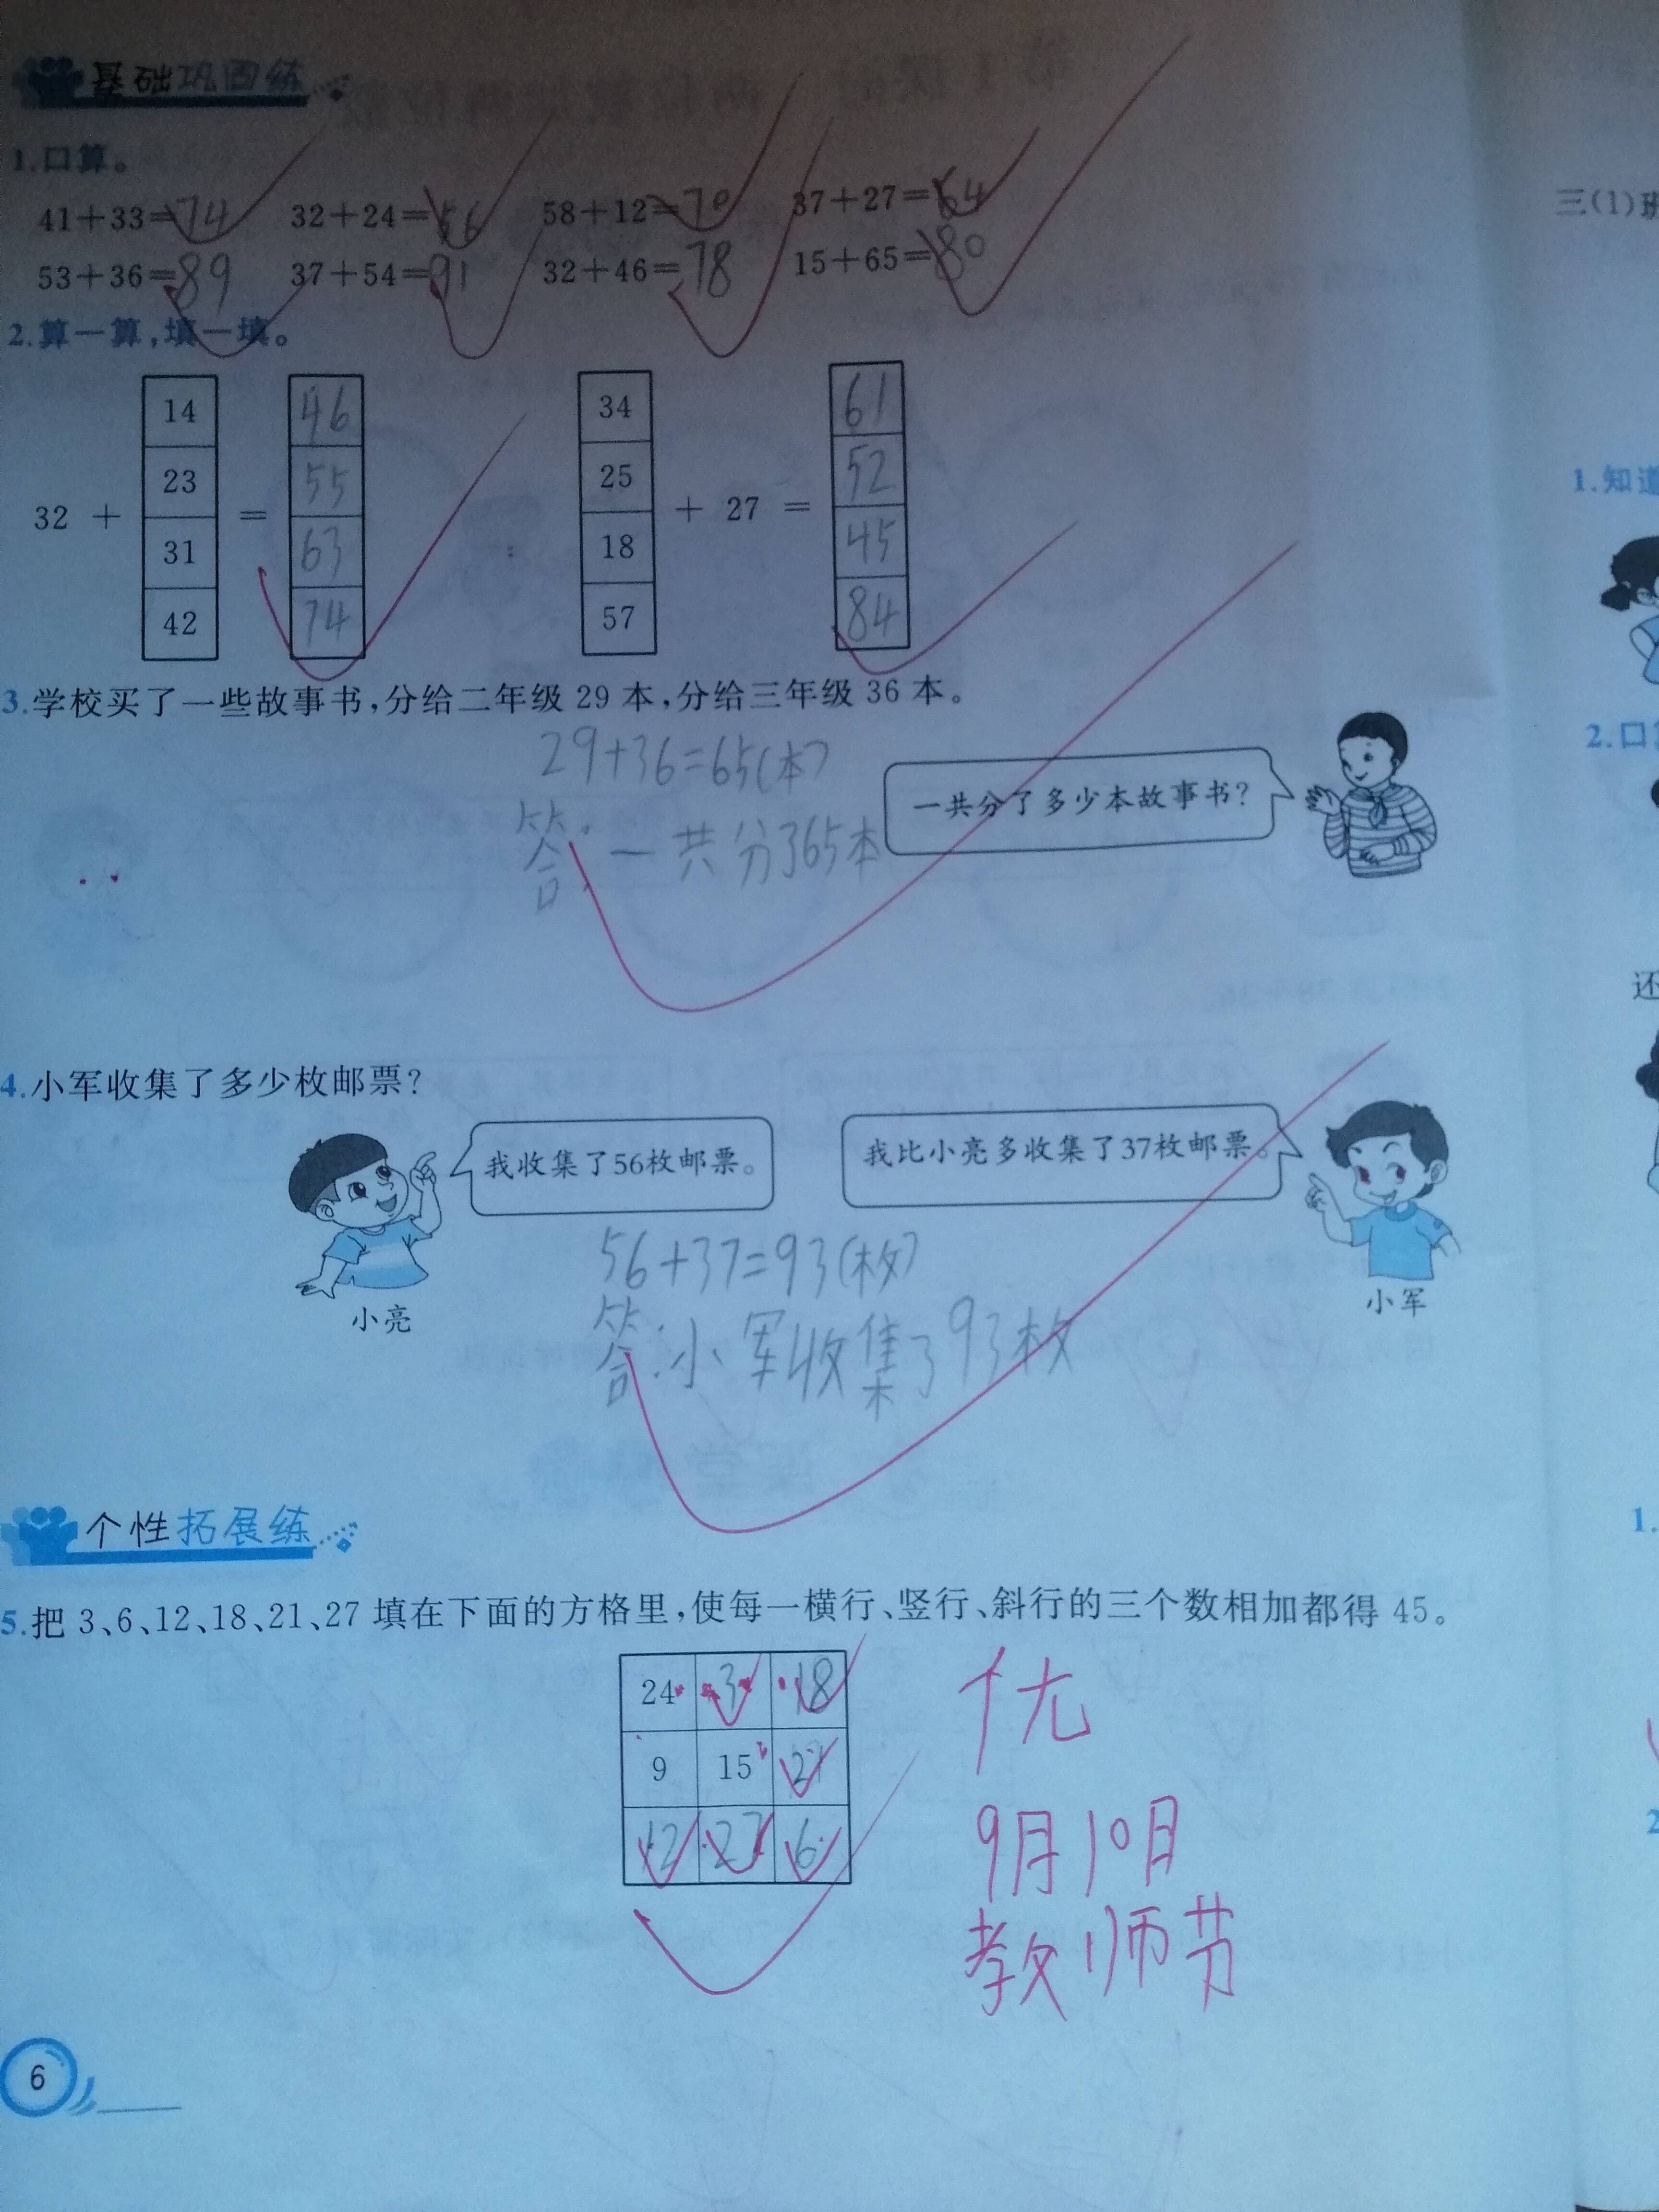 基础巩固练
1.口算。
41+33=74 32+24=56 58+12=70 37+27=64
53+36=89 37+54=91 32+46=78 15+65=80
2.算一算,填一填。
14 46 34 61
23 55 25 52
32 + = + 27 =
31 63 18 45
42 74 57 84
3.学校买了一些故事书,分给二年级 29 本,分给三年级 36 本。
29+36=65(本)
一共分了多少本故事书?
答:一共分了65本
4.小军收集了多少枚邮票?
我收集了56枚邮票。
我比小亮多收集了37枚邮票。
56+37=93(枚)
小亮
小军
答:小军收集了93枚
个性拓展练
5.把 3、6、12、18、21、27 填在下面的方格里,使每一横行、竖行、斜行的三个数相加都得 45。
24 3 18
9 15 21
12 27 6
优
9月10日
教师节
6
三(1)班
1.知道
2.口
还
1.
2